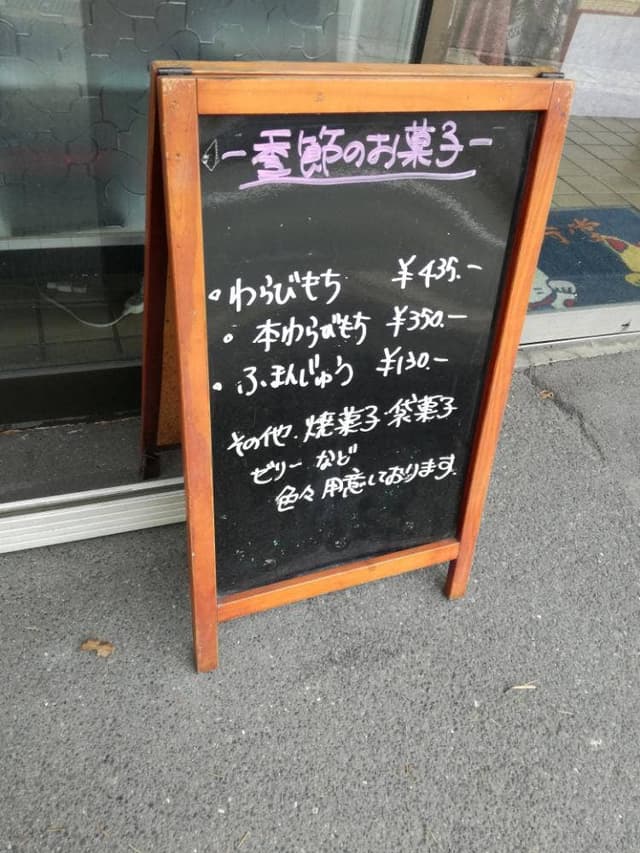 －季節のお菓子－
・わらびもち ￥435.－
・本わらびもち ￥350.－
・ふまんじゅう ￥130.－
その他.焼菓子.袋菓子
ゼリーなど
色々用意しております.